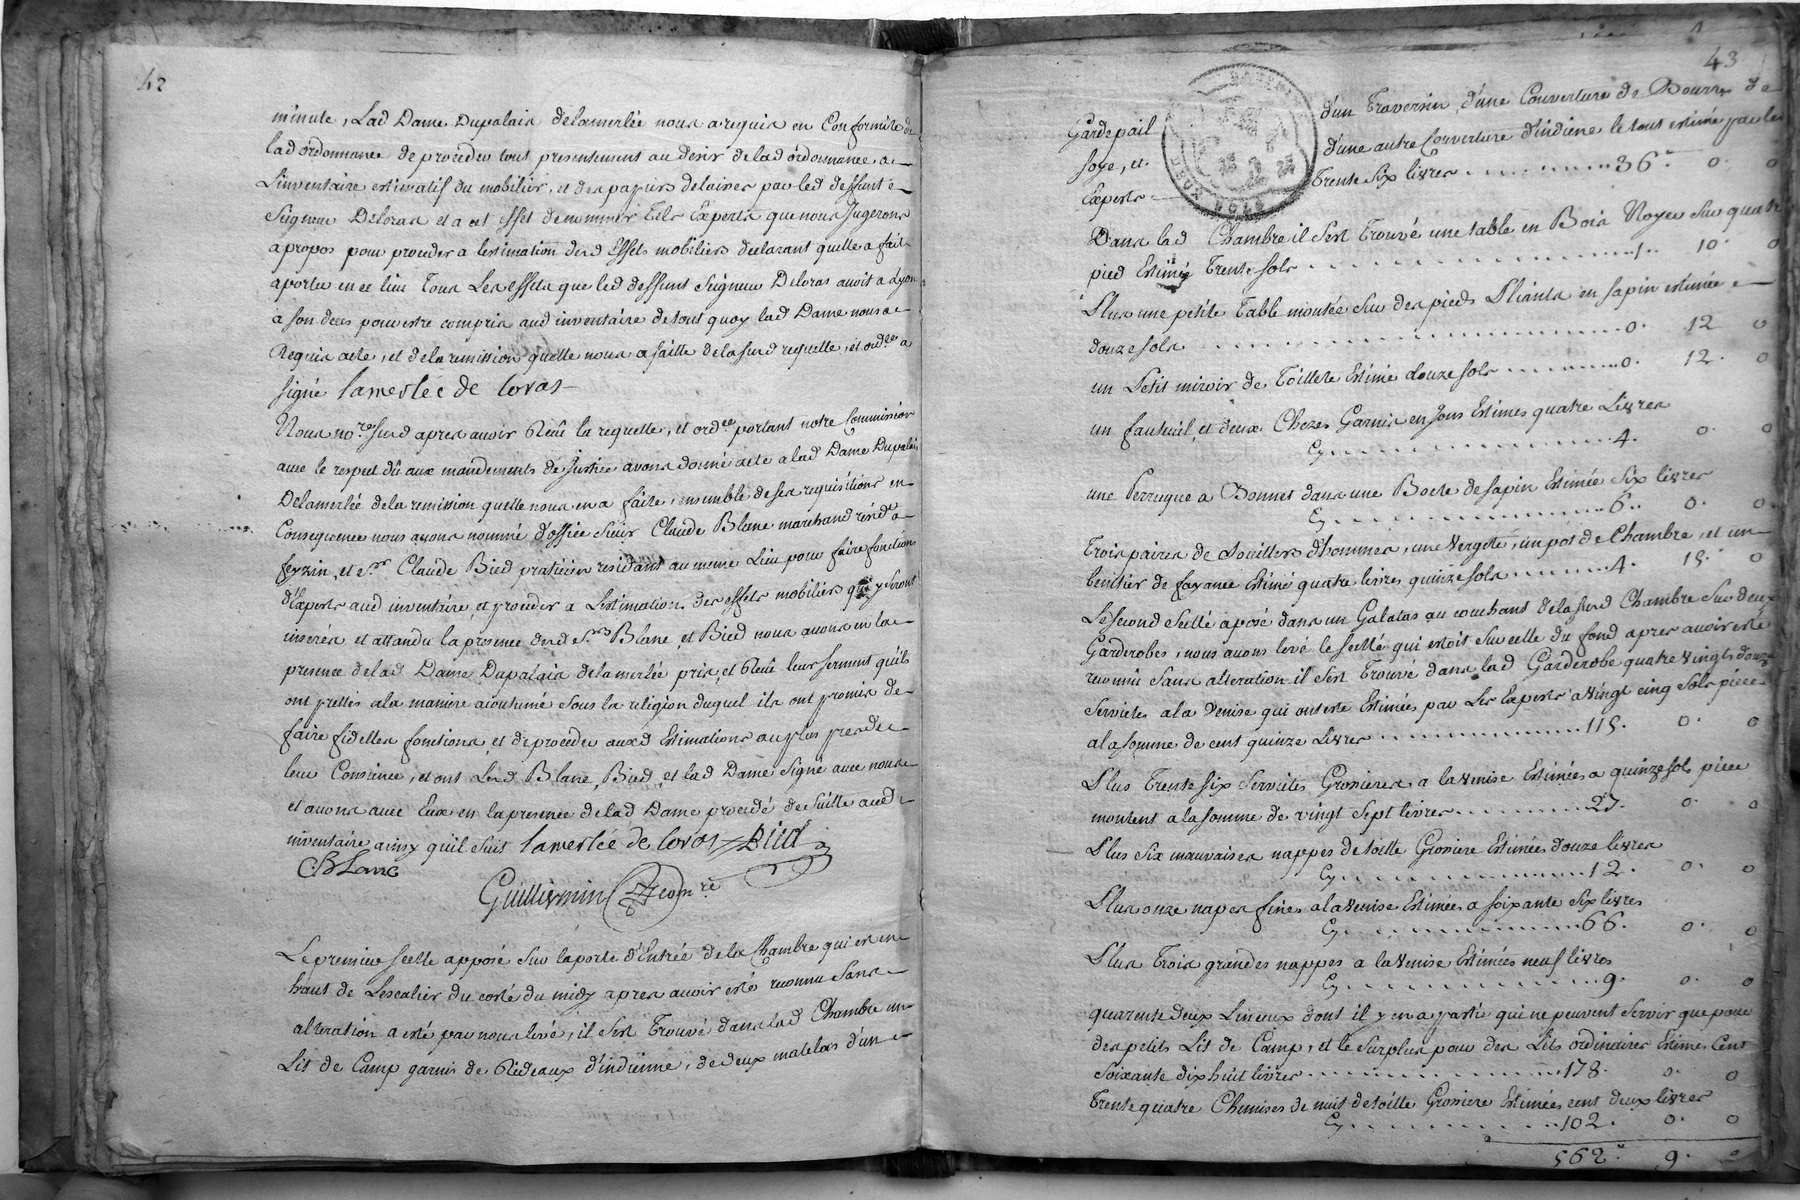 42
minute, Lad Dame Dupalais delamerlée nous a requis en Conformité de
lad ordonnance de proceder tout presentement au desir delad ordonnance, a
Linventaire estimatif du mobilier, et des papiers delaissés par led deffunt
Seigneur Deloras et a cet effet denommer Tels Experts que nous Jugerons
apropos pour proceder a lestimation desd Effets mobiliers declarant quelle a fait
aporter en ce lieu Tous Les effets que led deffunt Seigneur Deloras avoit a Lyon
a son deces pour estre compris aud inventaire de tout quoy lad Dame nous a
Requis acte, et de la remission quelle nous a faitte de la susd requette, et ordce a
signé lamerlée de loras
Nous nore susd apres avoir Reçû la requette, et ordce portant notre Commission
avec le respect dû aux mandements de Justice avons donné acte a lad Dame Dupalais
Delamerlée de la remission quelle nous en a faite, ensemble de ses requisitions en
Consequence nous avons nommé d'office sieur Claude Blanc marchand résidt a
feyzin, et sr Claude Bied praticien residant au meme Lieu pour faire fonctions
d'Experts aud inventaire, et proceder a Lestimation des effets mobiliers qui y seront
inserés et attandu la presence desd Srs Blanc, et Bied nous avons en la
presence delad Dame Dupalais delamerlée pris, et Reçû leur serment qu'ils
ont prettés a la maniere acoutumé sous la religion duquel ils ont promis de
faire fidelles fonctions, et de proceder auxd Estimations au plus pres de
leur Consience, et ont Lesd Blanc, Bied, et lad Dame signé avec nous
et avons avec Eux en la presence de lad Dame procedé de suitte aud
inventaire ainsy qu'il suit lamerlée de loras Bied
Blanc
Guilliermin
Le premier scellé apposé sur la porte d'Entrée de la Chambre qui est en
haut de Lescalier du costé du midy apres avoir esté reconnu sans
alteration a esté par nous levé, il s'est Trouvé dans lad Chambre un
Lit de Camp garni de Rideaux d'indienne, de deux matelas d'un
43
Gardepail d'un Traversin, d'une Couverture de Bourre de
soye, et d'une autre Couverture d'indiene le tout estimé par les
Experts Trente six livres 36 0 0
Dans lad Chambre il s'est Trouvé une table en Bois Noyer sur quatre
pied Estimée Trente sols 1 10 0
Plus une petite Table montée sur des pieds Pliants en sapin estimée
douze sols 0 12 0
un Petit miroir de Toillete Estimé douze sols 0 12 0
un fauteuil, et deux Chezes Garnis en Jons Estimes quatre Livres
Cy 4 0 0
une Perruque a Bonnet dans une Boete de sapin Estimée Six livres
Cy 6 0 0
Trois paires de souillers d'hommes, une Vergete, un pot de Chambre, et un
benitier de fayance Estimé quatre livres quinze sols 4 15 0
Le second scellé aposé dans un Galatas au couchant de la susd Chambre sur deux
Garderobes, nous avons levé le scellé qui estoit sur celle du fond apres avoir esté
reconnû sans alteration il s'est Trouvé dans lad Garderobe quatre vingt douze
servietes a la venise qui ont esté Estimées par Les Experts a Vingt cinq sols piece
a la somme de cent quinze Livres 115 0 0
Plus Trente six Servietes Grossieres a la venise Estimées a quinze sols piece
montent a la somme de vingt sept livres 27 0 0
Plus six mauvaises nappes de toille Grossiere Estimées douze livres
Cy 12 0 0
Plus onze napes fines a la venise Estimées a soixante six livres
Cy 66 0 0
Plus Trois grandes nappes a la venise Estimées neuf livres
Cy 9 0 0
quarente deux Linceux dont il y en a partie qui ne peuvent servir que pour
des petits Lit de Camp, et le surplus pour des Lits ordinaires Estimes Cent
soixante dix huit livres 178 0 0
Trente quatre Chemises de nuit de toille Grossiere Estimées cent deux livres
Cy 102 0 0
562 9